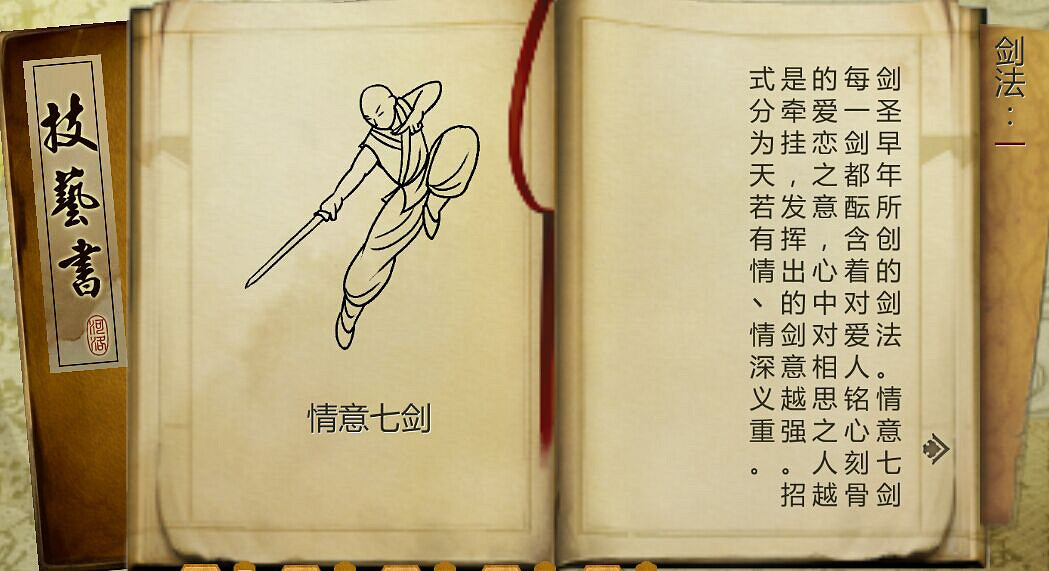 技藝書
河洛
情意七剑
剑圣早年所创的剑法。情意七剑
每一剑都酝含着对爱人铭心刻骨
的爱恋之意，心中对相思之人越
是牵挂，发挥出的剑意越强。招
式分为天若有情、情深义重。
剑法：一